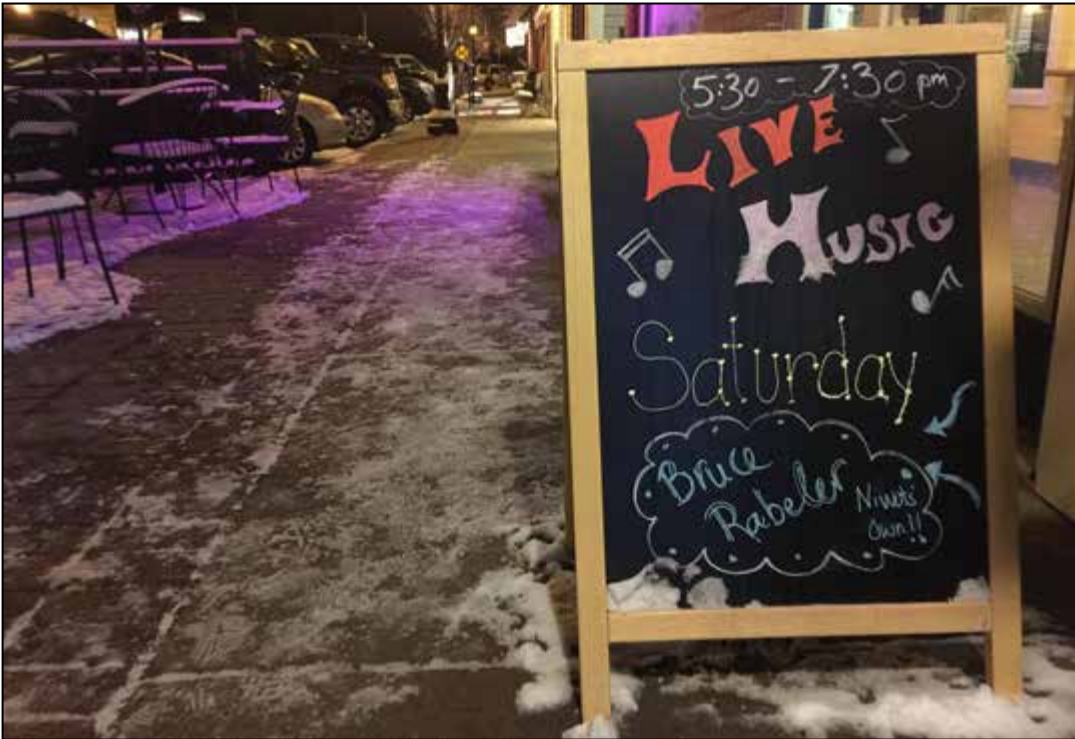 5:30 - 7:30 pm
LIVE
MUSIC
Saturday
Bruce
Rabeler
Niwots'
Own!!